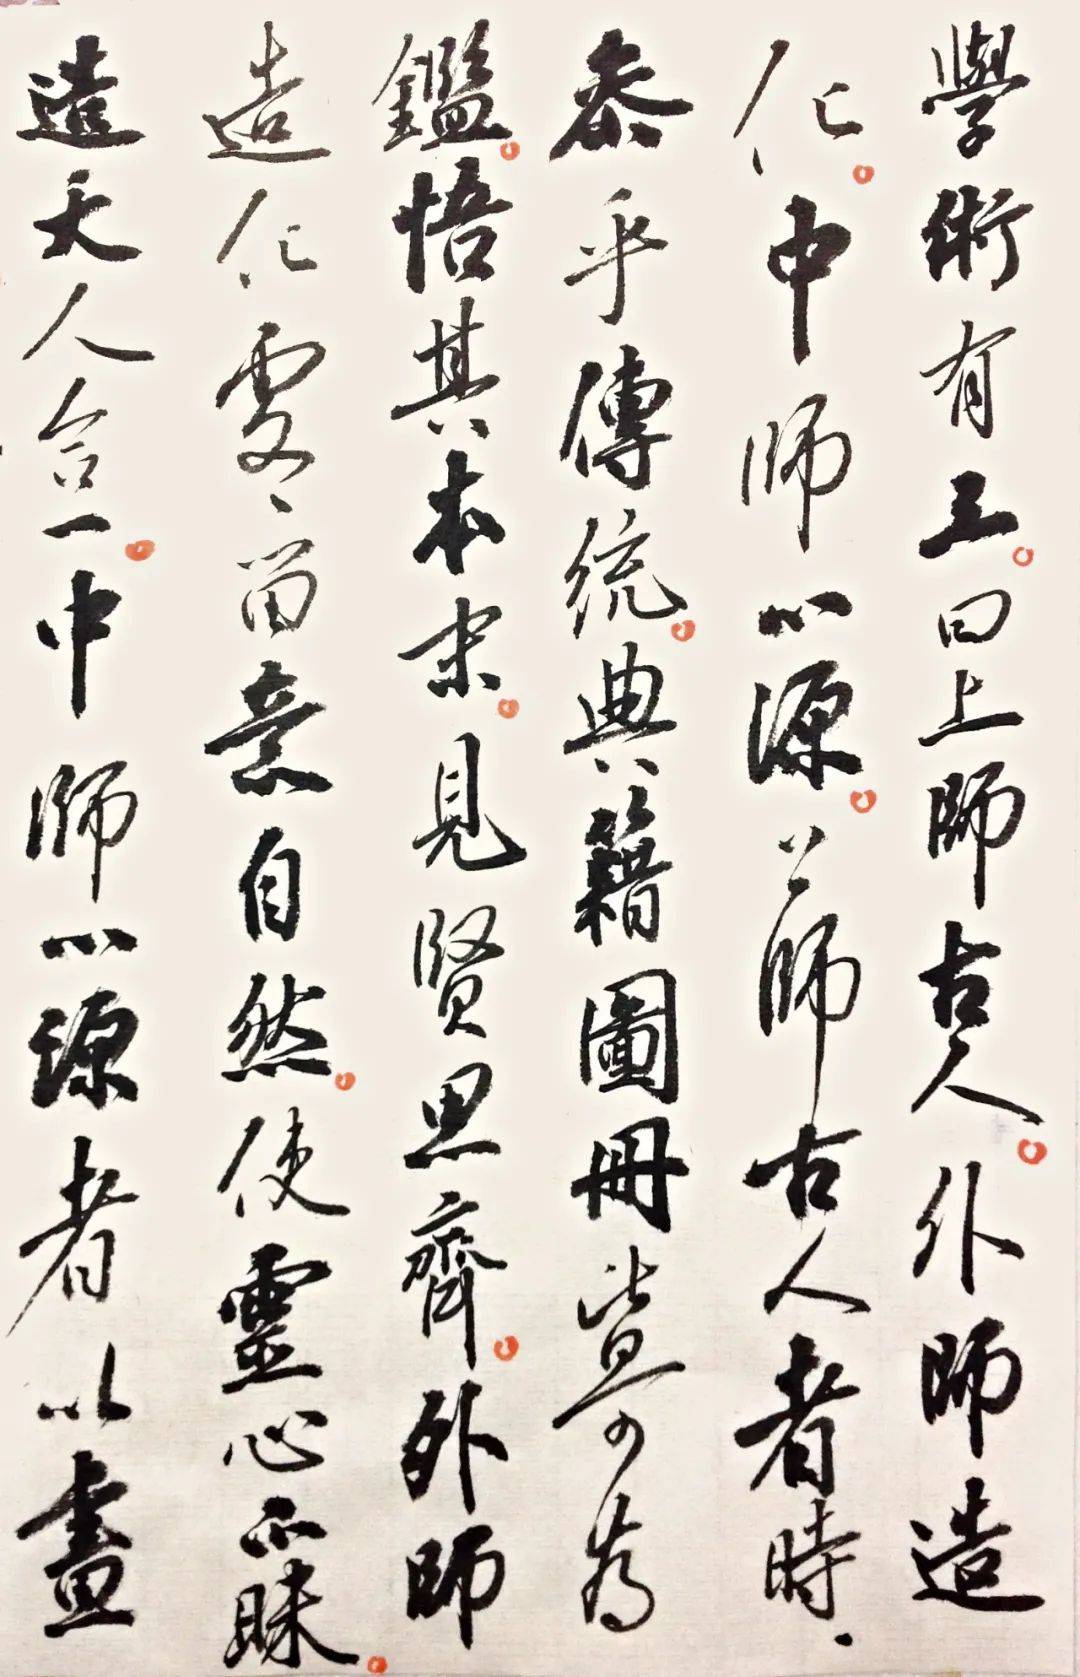 學術有三曰上師古人外師造
化中師心源上師古人者時〻
參乎傳統典籍圖冊皆可為
鑑悟其本末見賢思齊外師
造化處〻留意自然使靈心不昧
達天人合一中師心源者以畫